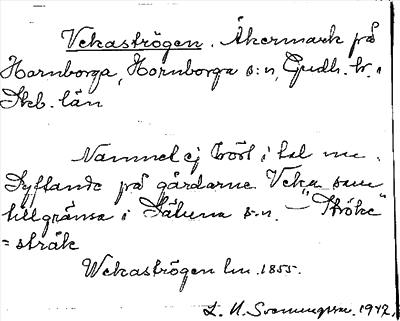 Vekaströgen. Åkermark på
Hornborga, Hornborga s:n, Gudh. hr.,
Skb. län
Namnet ej hört i tal nu.
Syftande på gårdarne Veka som
tillgränsa i Sätuna s:n. — "Ströke"
= stråk
Wekaströgen lm. 1855.
L. N. Svenungsson. 1947.